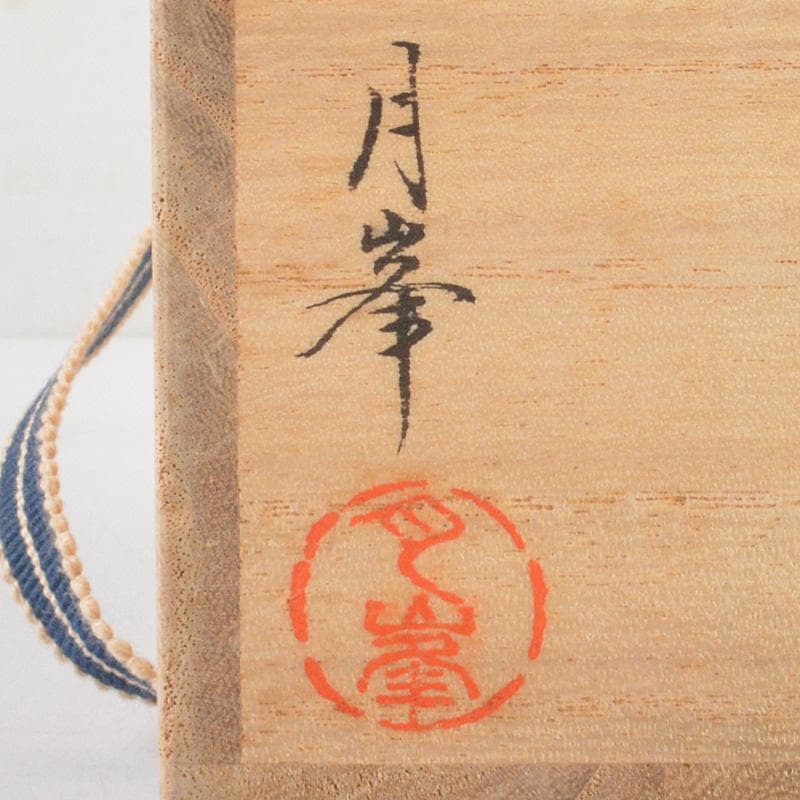 月峯
月峯